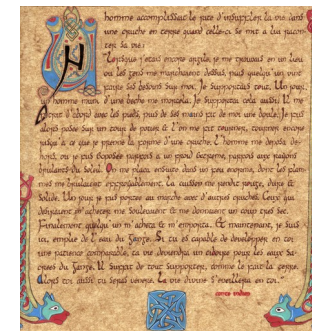 homme accomplissait le rite d'insuffler la vie dans
une cruche en terre quand celle-ci se mit à lui racon-
ter sa vie:
"Lorsque j'étais encore argile, je me trouvais en un lieu
où les gens me marchaient dessus, puis quelqu'un vint
faire ses besoins sur moi. Je supportais tout. Un jour,
un homme muni d'une bêche me morcela. Je supportai cela aussi. Il me
pétrit d'abord avec les pieds, puis de ses mains fit de moi une boule. Je fus
alors posée sur un tour de potier & l'on me fit tourner, tourner encore
jusqu'à ce que je prenne la forme d'une cruche. L'homme me déposa de-
hors, où je fus exposée au froid extrême, parfois aux rayons
brûlants du soleil. On me plaça ensuite dans un feu énorme, dont les flam-
mes me brûlaient épouvantablement. La cuisson me rendit rouge, dure &
solide. Un jour je fus portée au marché avec d'autres cruches. Ceux qui
désiraient m'acheter me soulevaient & me donnaient un coup très sec.
Finalement quelqu'un m'acheta & m'emporta. Et maintenant, je suis
ici, emplie de l'eau du Gange. Si tu es capable de développer en toi
une patience comparable, ta vie deviendra un vase pour les eaux sa-
crées du Gange. Il suffit de tout supporter, comme le fait la terre.
Alors toi aussi tu seras vénéré. La vie divine s'éveillera en toi."